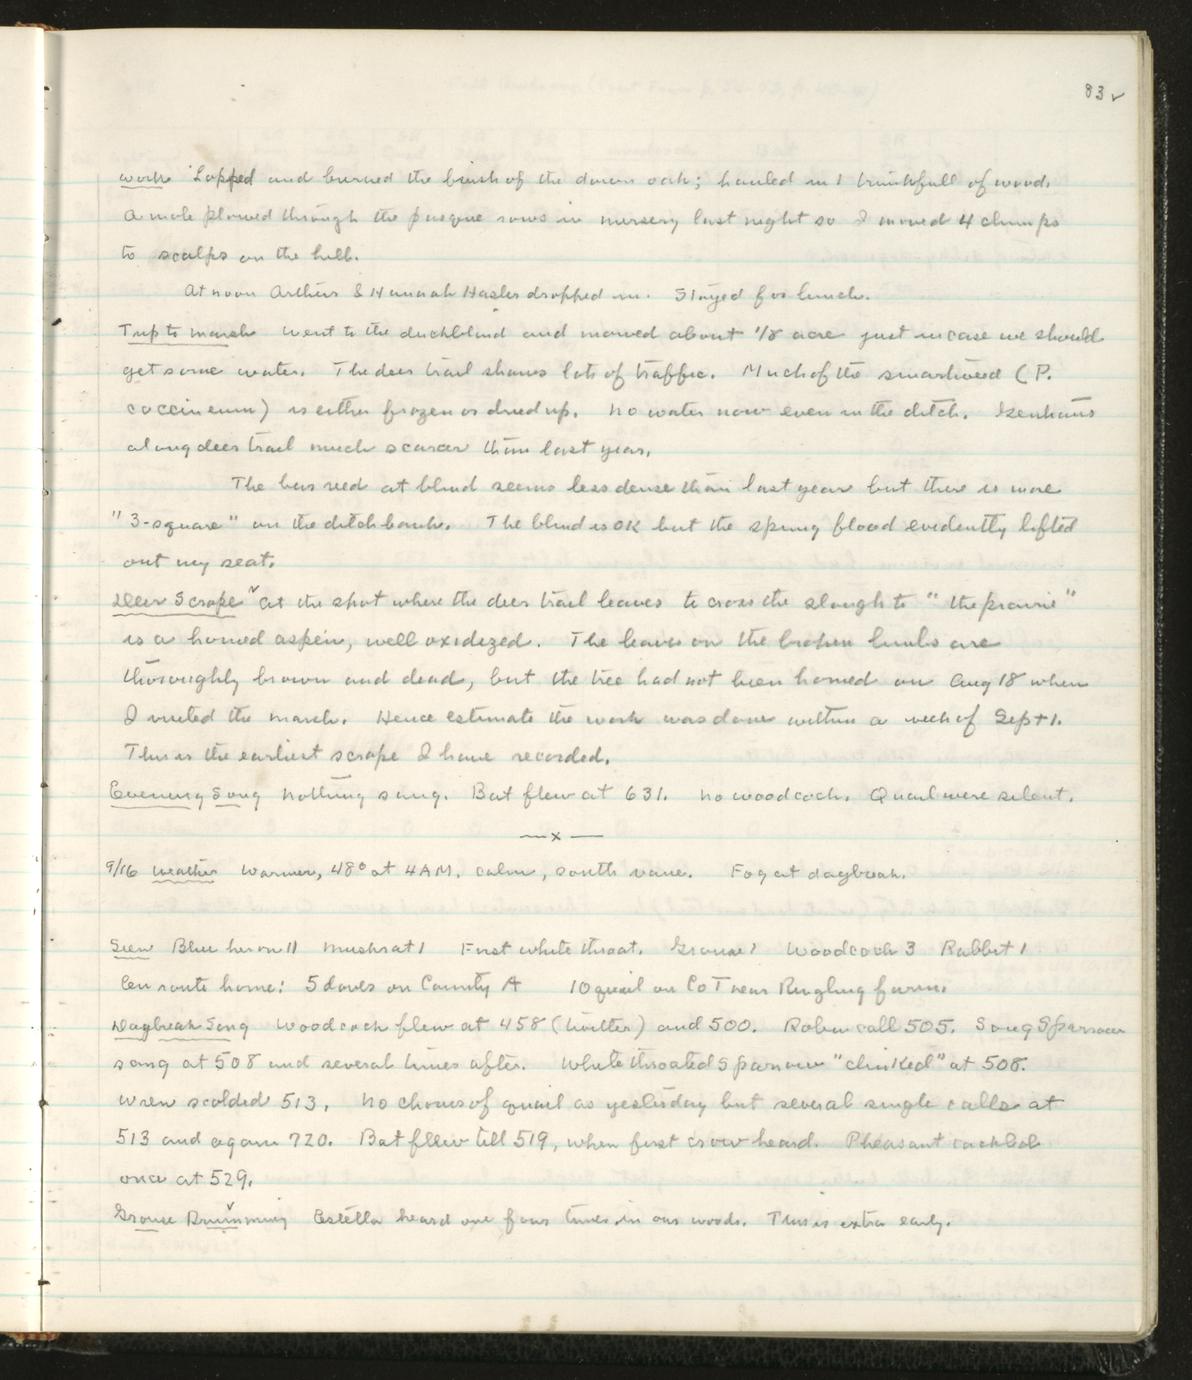 83 ✓
Work Lopped and burned the brush of the down oak; hauled in 1 trunkfull of wood.
A mole plowed through the pasque rows in nursery last night so I moved 4 clumps
to scalps on the hill.
At noon Arthur & Hannah Hasler dropped in. Stayed for lunch.
Trip to Marsh Went to the duckblind and mowed about 1/8 acre just in case we should
get some water. The deer trail shows lots of traffic. Much of the smartweed (P.
coccineum) is either frozen or dried up. No water now even in the ditch. Gentians
along deer trail much scarcer than last year.
The bur reed at blind seems less dense than last year but there is more
"3-square" on the ditchbank. The blind is OK but the spring flood evidently lifted
out my seat.
Deer Scrape ✓ At the spot where the deer trail leaves to cross the slough to "the prairie"
is a horned aspen, well oxidized. The leaves on the broken limbs are
thoroughly brown and dead, but the tree had not been horned on Aug 18 when
I visited the marsh. Hence estimate the work was done within a week of Sept 1.
This is the earliest scrape I have recorded.
Evening Song Nothing sang. Bat flew at 631. No woodcock. Quail were silent.
—x—
9/16 Weather Warmer, 48° at 4AM. calm, south vane. Fog at daybreak.
Seen Blue heron 11 Muskrat 1 First white throat. Grouse 1 Woodcock 3 Rabbit 1
En route home: 5 doves on County A 10 quail on Co T near Ringling farm.
Daybreak Song Woodcock flew at 458 (twitter) and 500. Robin call 505. Song Sparrow
song at 508 and several times after. White throated Sparrow "clinked" at 508.
Wren scolded 513. No chorus of quail as yesterday but several single calls at
513 and again 720. Bat flew till 519, when first crow heard. Pheasant cackled
once at 529.
Grouse Drumming ✓ Estella heard one four times in our woods. This is extra early.